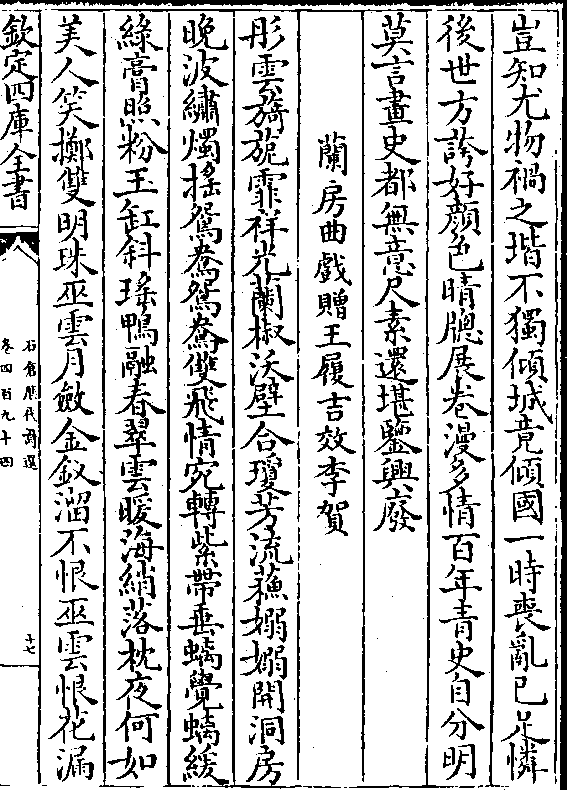 豈知尤物禍之堦不獨傾城竟傾國一時喪亂已足憐
後世方誇好顔色晴牕展卷漫多情百年青史自分明
莫言畫史都無意尺素還堪鑒興廢
蘭房曲戲贈王履吉效李賀
彤雲旖旎霏祥光蘭椒沃壁合瓊芳流蘓嫋嫋開洞房
晚波繡燭揺鴛鴦鴛鴦雙飛情宛轉紫帶垂螭覺螭緩
綠膏照粉玉缸斜瑤鴨融春翠雲暖海綃落枕夜何如
美人笑擲雙明珠巫雲月斂金釵溜不恨巫雲恨花漏
欽定四庫全書
石倉歴代詩選
卷四百九十四
十七